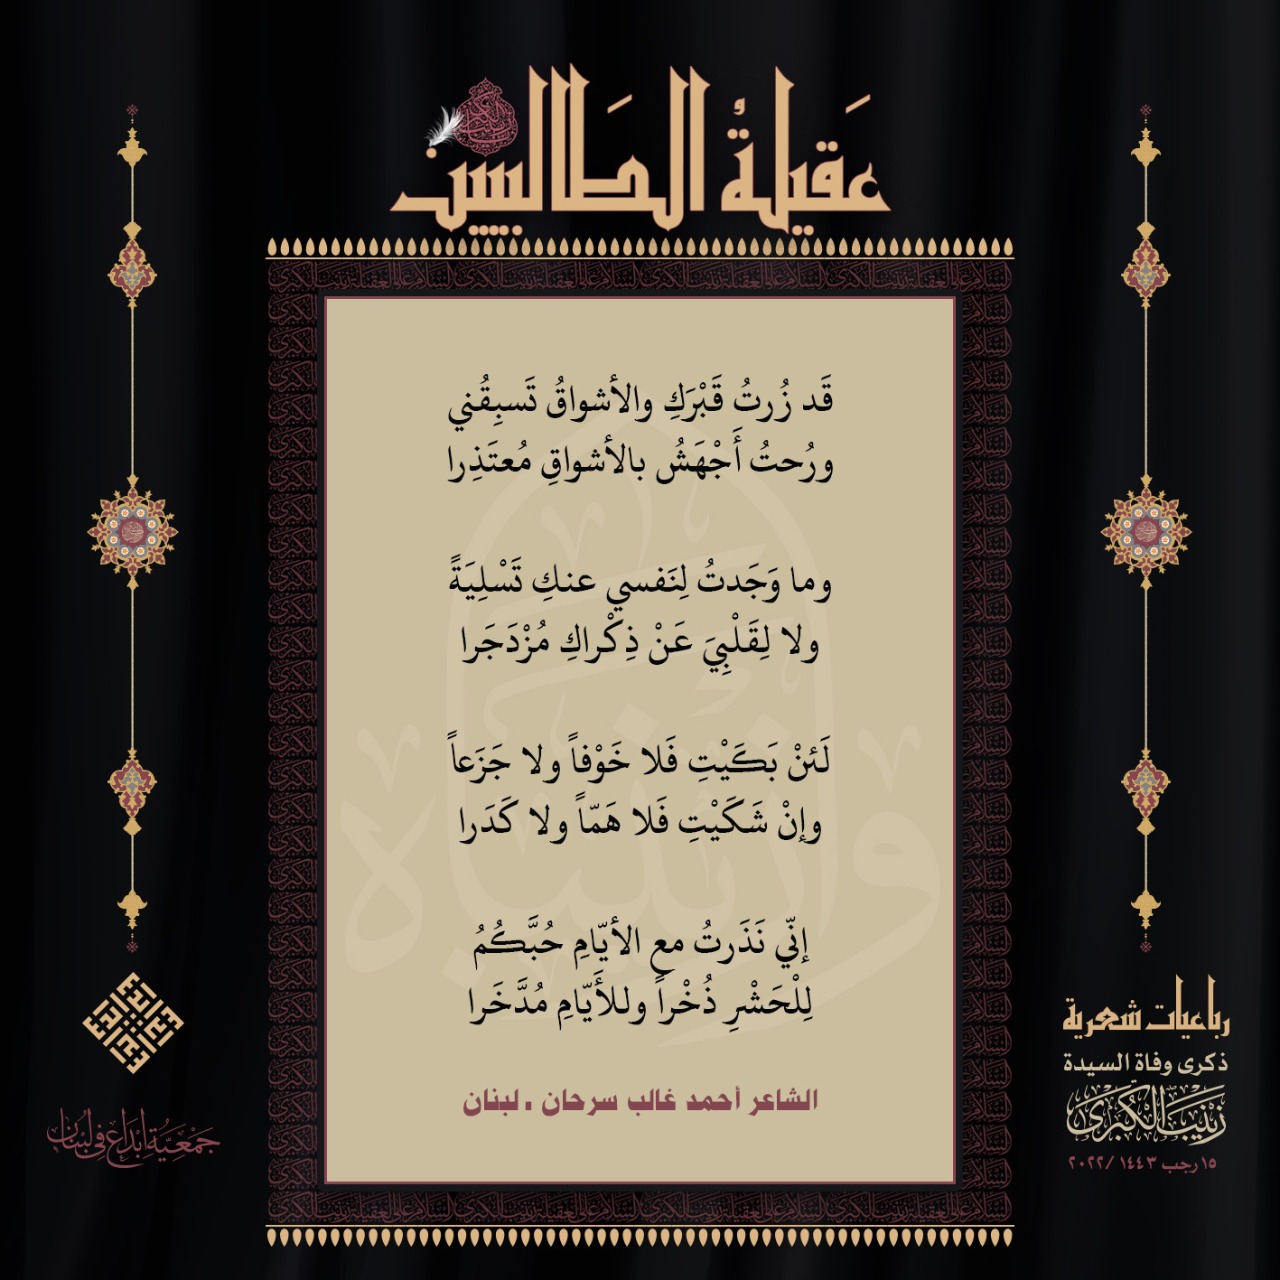 عَقيلةُ الطَالبيين
قَد زُرتُ قَبْرَكِ والأشواقُ تَسبِقُني
ورُحتُ أَجْهَشُ بالأشواقِ مُعتَذِرا
وما وَجَدتُ لِنَفسي عنكِ تَسْلِيَةً
ولا لِقَلْبِيَ عَنْ ذِكْراكِ مُزْدَجَرا
لَئنْ بَكَيْتِ فَلا خَوْفاً ولا جَزَعاً
وإنْ شَكَيْتِ فَلا هَمّاً ولا كَدَرا
إنّي نَذَرتُ مع الأيّامِ حُبَّكُمُ
لِلْحَشْرِ ذُخْراً وللأَيّامِ مُدَّخَرا
الشاعر أحمد غالب سرحان . لبنان
رباعيات شعرية
ذكرى وفاة السيدة
زَيْنَبَ الكُبْرَى
١٥ رجب ١٤٤٣ /٢٠٢٢
جَمْعِيَّةُ إبْدَاع فِي لبْنَان